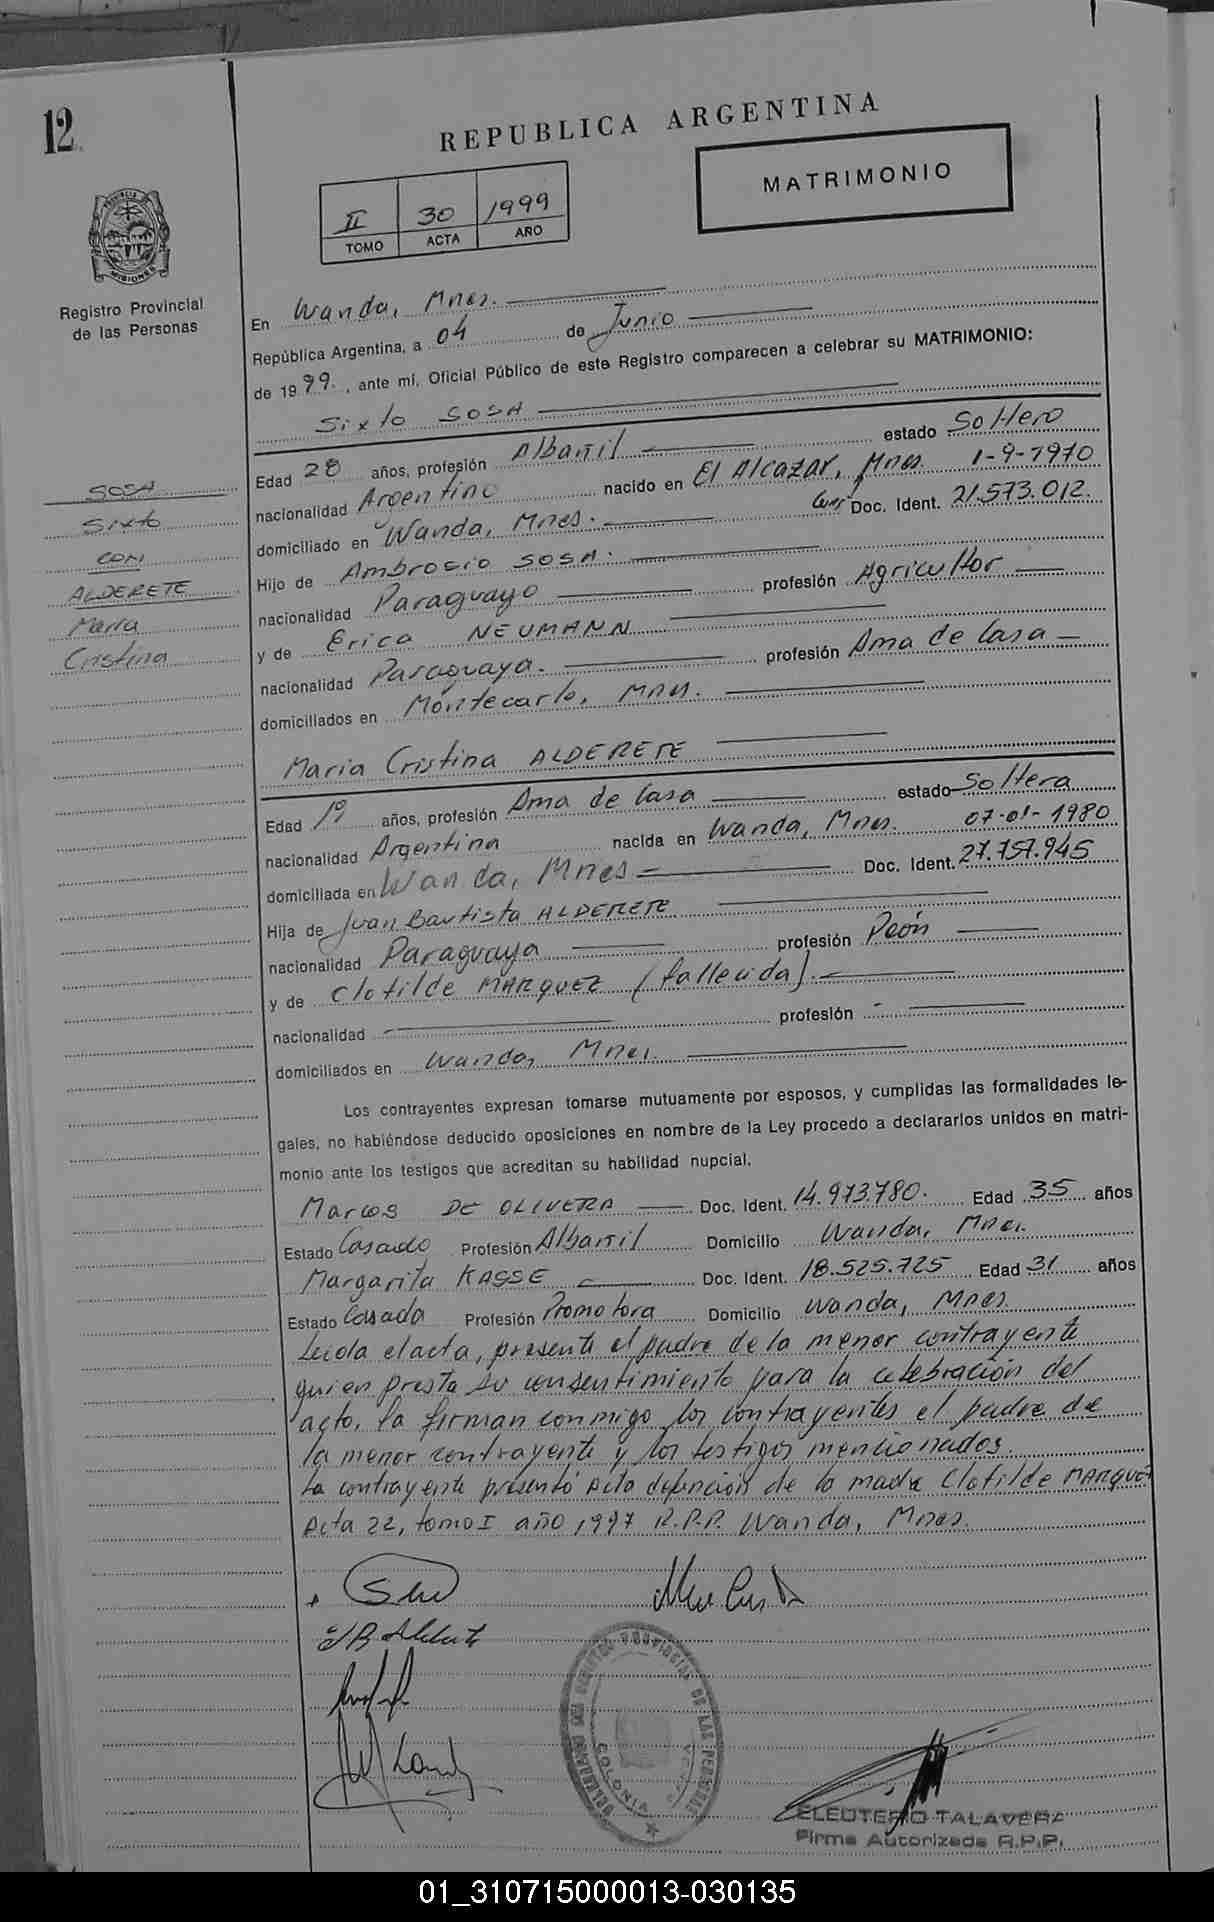 12
REPUBLICA ARGENTINA
MATRIMONIO
II 30 1999
TOMO ACTA AÑO
PROVINCIA DE MISIONES
Registro Provincial
de las Personas
En Wanda, Mnes.
República Argentina, a 04 de Junio
de 1999., ante mí, Oficial Público de este Registro comparecen a celebrar su MATRIMONIO:
Sixto SOSA
SOSA
Sixto
CON
ALDERETE
María
Cristina
Edad 28 años, profesión Albañil estado Soltero
nacionalidad Argentino nacido en El Alcazar, Mnes 1-9-1970
domiciliado en Wanda, Mnes. Doc. Ident. 21.573.012.
Hijo de Ambrosio SOSA.
nacionalidad Paraguayo profesión Agricultor
y de Erica NEUMANN
nacionalidad Paraguaya. profesión Ama de Casa
domiciliados en Montecarlo, Mnes.
María Cristina ALDERETE
Edad 19 años, profesión Ama de Casa estado Soltera
nacionalidad Argentina nacida en Wanda, Mnes. 07-01-1980
domiciliada en Wanda, Mnes Doc. Ident. 27.757.945
Hija de Juan Bautista ALDERETE
nacionalidad Paraguaya profesión Peón
y de Clotilde MARQUEZ (fallecida).
nacionalidad profesión
domiciliados en Wanda, Mnes.
Los contrayentes expresan tomarse mutuamente por esposos, y cumplidas las formalidades le-
gales, no habiéndose deducido oposiciones en nombre de la Ley procedo a declararlos unidos en matri-
monio ante los testigos que acreditan su habilidad nupcial.
Marcos DE OLIVERA Doc. Ident. 14.973.780. Edad 35 años
Estado Casado Profesión Albañil Domicilio Wanda, Mnes.
Margarita KASSE Doc. Ident. 18.525.725 Edad 31 años
Estado Casada Profesión Promotora Domicilio Wanda, Mnes
Leida el acta, presente el padre de la menor contrayente
quien presta su consentimiento para la celebración del
acto, la firman conmigo los contrayentes el padre de
la menor contrayente y los testigos mencionados.
La contrayente presentó Acta defunción de la madre Clotilde MARQUEZ
Acta 22, tomo I año 1997 R.P.P. Wanda, Mnes.
COLONIA
ELEUTERIO TALAVERA
Firma Autorizada R.P.P.
01_310715000013-030135